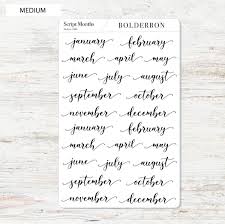 MEDIUM
Script Months BOLDERBON
january february
march april may
june july august
september october
november december
january february
march april may
june july august
september october
november december